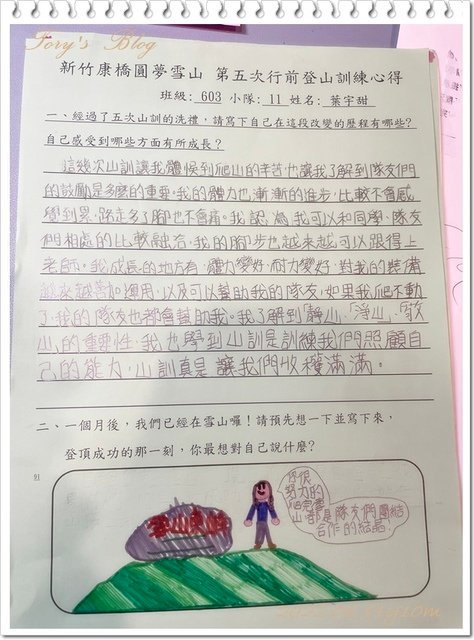 Tory's Blog
新竹康橋圓夢雪山 第五次行前登山訓練心得
班級: 603 小隊: 11 姓名: 葉宇甜
一、經過了五次山訓的洗禮，請寫下自己在這段改變的歷程有哪些?
自己感受到哪些方面有所成長?
這幾次山訓讓我體候到爬山的辛苦也讓我了解到隊友們
的鼓勵是多麼的重要。我的體力也漸漸的進步，比較不會感
覺到累，路走多了腳也不會痛。我認為我可以和同學、隊友
們相處的比較融洽，我的腳步也越來越可以跟得上
老師。我成長的地方有，體力變好，耐力變好，對我的裝備
越來越善加運用，以及可以幫助我的隊友，如果我爬不動
了，我的隊友也都會幫助我。我了解到「靜山」、「淨山」、「敬
山」的重要性，我也學到山訓是訓練我們照顧自
己的能力，山訓真是讓我們收穫滿滿。
二、一個月後，我們已經在雪山囉！請預先想一下並寫下來，
登頂成功的那一刻，你最想對自己說什麼?
91
你很
努力的
爬完雪
山
是隊友們團結
合作的結晶
雪山東峰